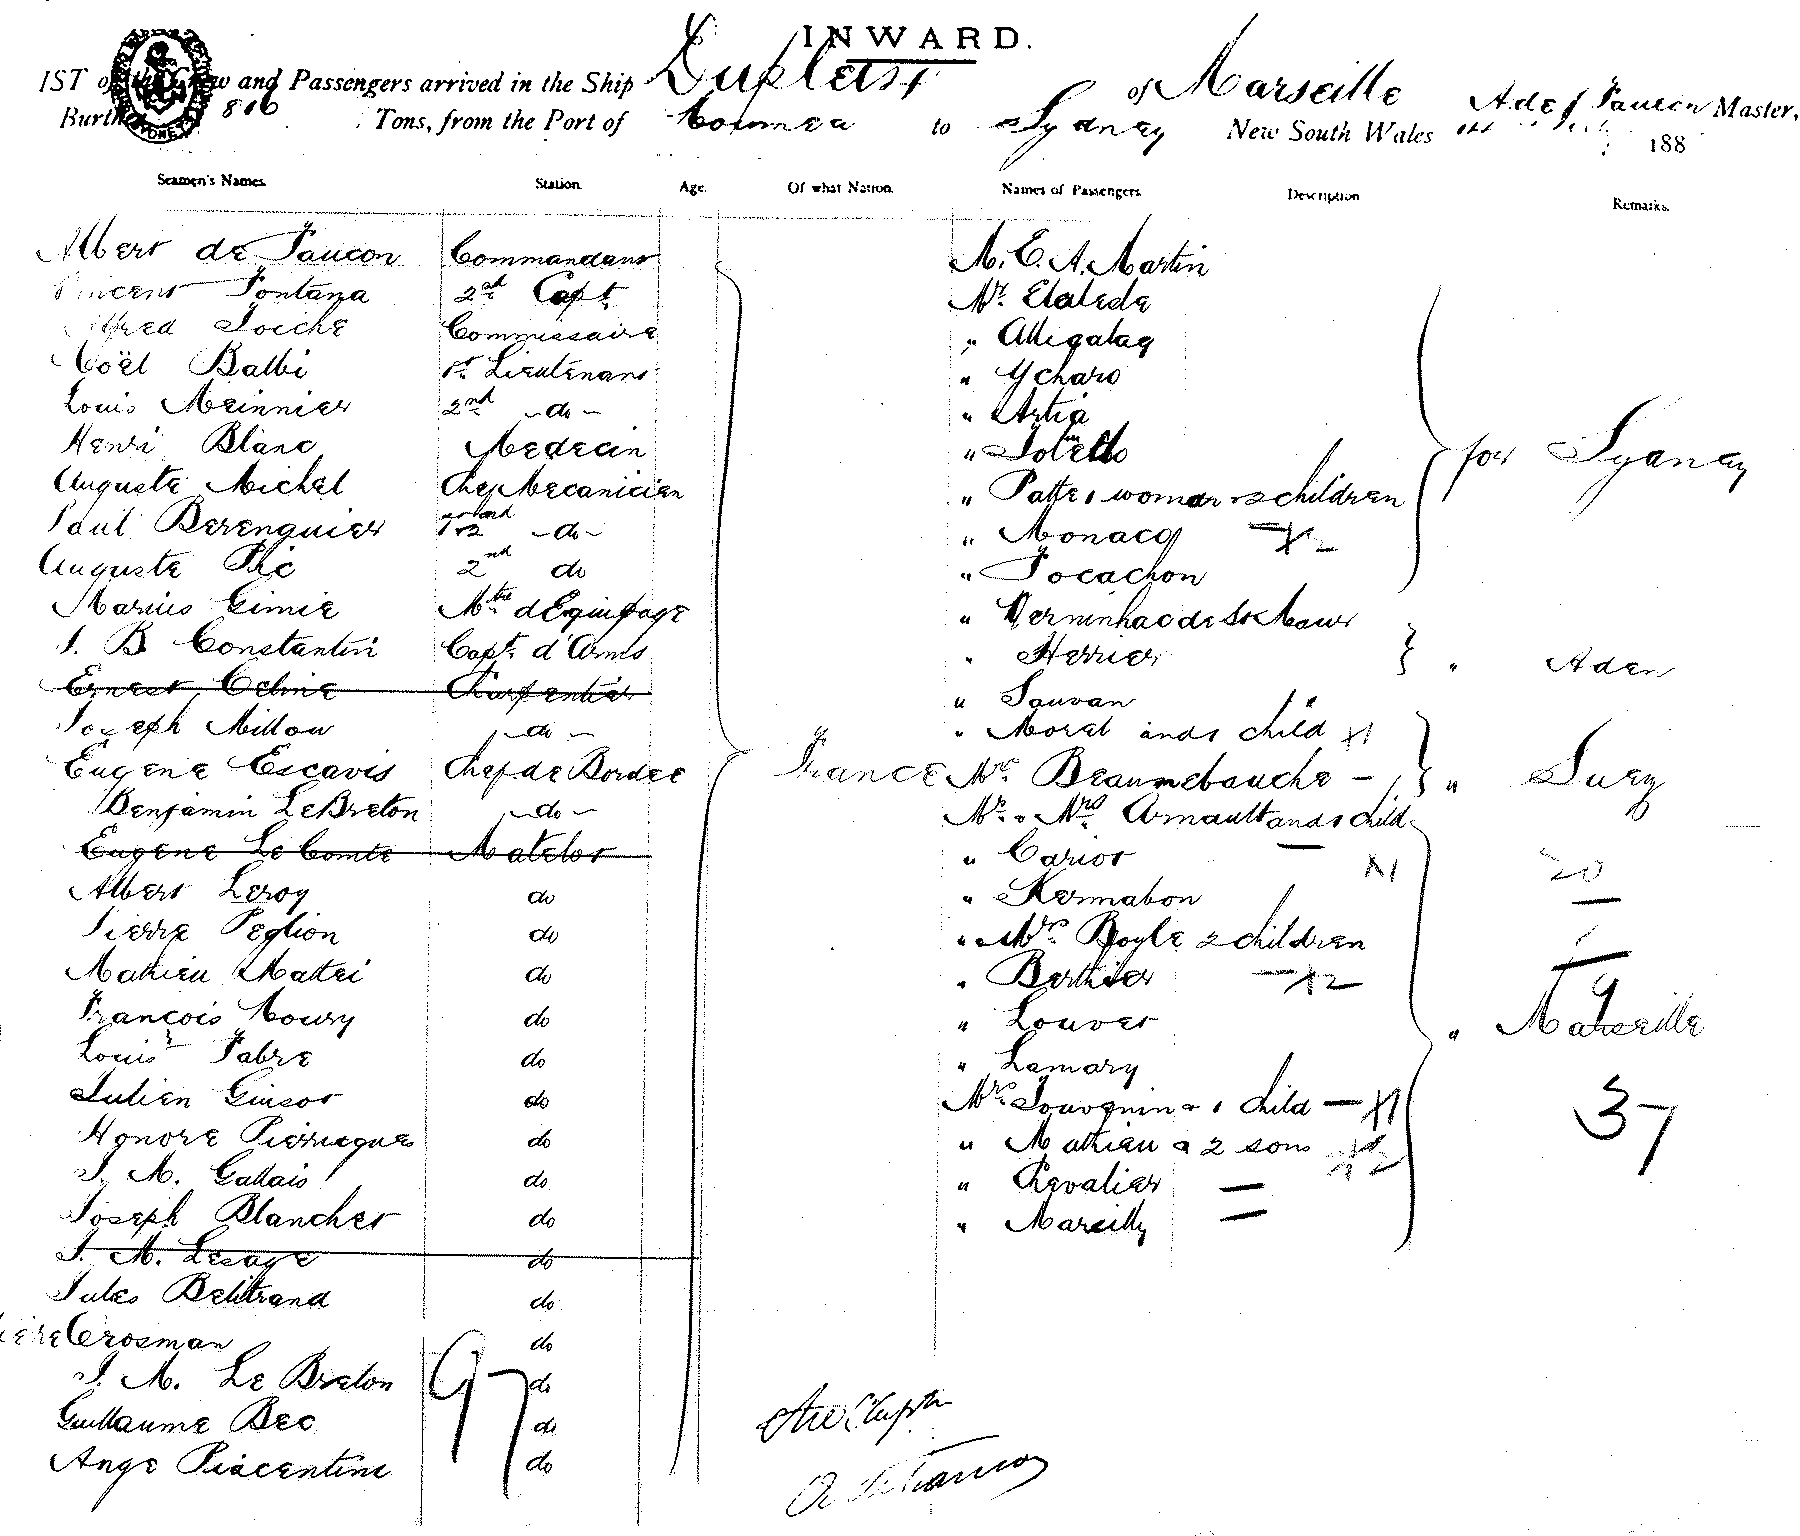 INWARD.
IST of the Crew and Passengers arrived in the Ship Dupleix of Marseille A de Faucon Master,
Burthen 816 Tons, from the Port of Noumea to Sydney New South Wales 188
Seamen's Names. Station. Age. Of what Nation. Names of Passengers. Description Remarks.
Albert de Faucon Commandant M. E. A. Martin
Vincent Fontana 2nd Capt. Mr.
Alfred Commissaire "
Noël Balbi 1st Lieutenant "
Louis Meinnier 2nd - do - " Artia
Henri Blanc Medecin " for Sydney
Auguste Michel Chef Mecanicien " Patte 1 woman 2 children
Paul Berenguier - do - " Monaco
Auguste Pic 2nd do " Focachon
Marius Gimie Mtre d'Equipage " Verninhac de St Maur
J. B Constantin Capt. d'Arms " Herrier " Aden
Ernest Celine Charpentier " Sauvan
Joseph Millou - do - " Morel and 1 child X1
Eugene Escavis Chef de Bordee France Mrs. Beaumebauche - " Suez
Benjamin Le Breton - do - Mr. & Mrs Arnault and 1 child
Eugene Le Comte Matelot " Cariot X1 20
Albert Leroy do " Kermabon
Pierre Peglion do " Mrs. Boyle 2 children
Mathieu Mattei do " Berthier - X2
François Noury do " Louvet " Marseille
Louis Fabre do " Lamary
Julien Ginsot do Mrs. Jouvenin & 1 child - X1 37
Honore do " Mathieu & 2 sons
J. M. Gallais do " Chevalier
Joseph Blanchet do " Marcilly
J. M. Lesage do
Jules Belitrand do
Crosman do
J. M. Le Breton do
97
Guillaume Bec do
Ange Piacentini do